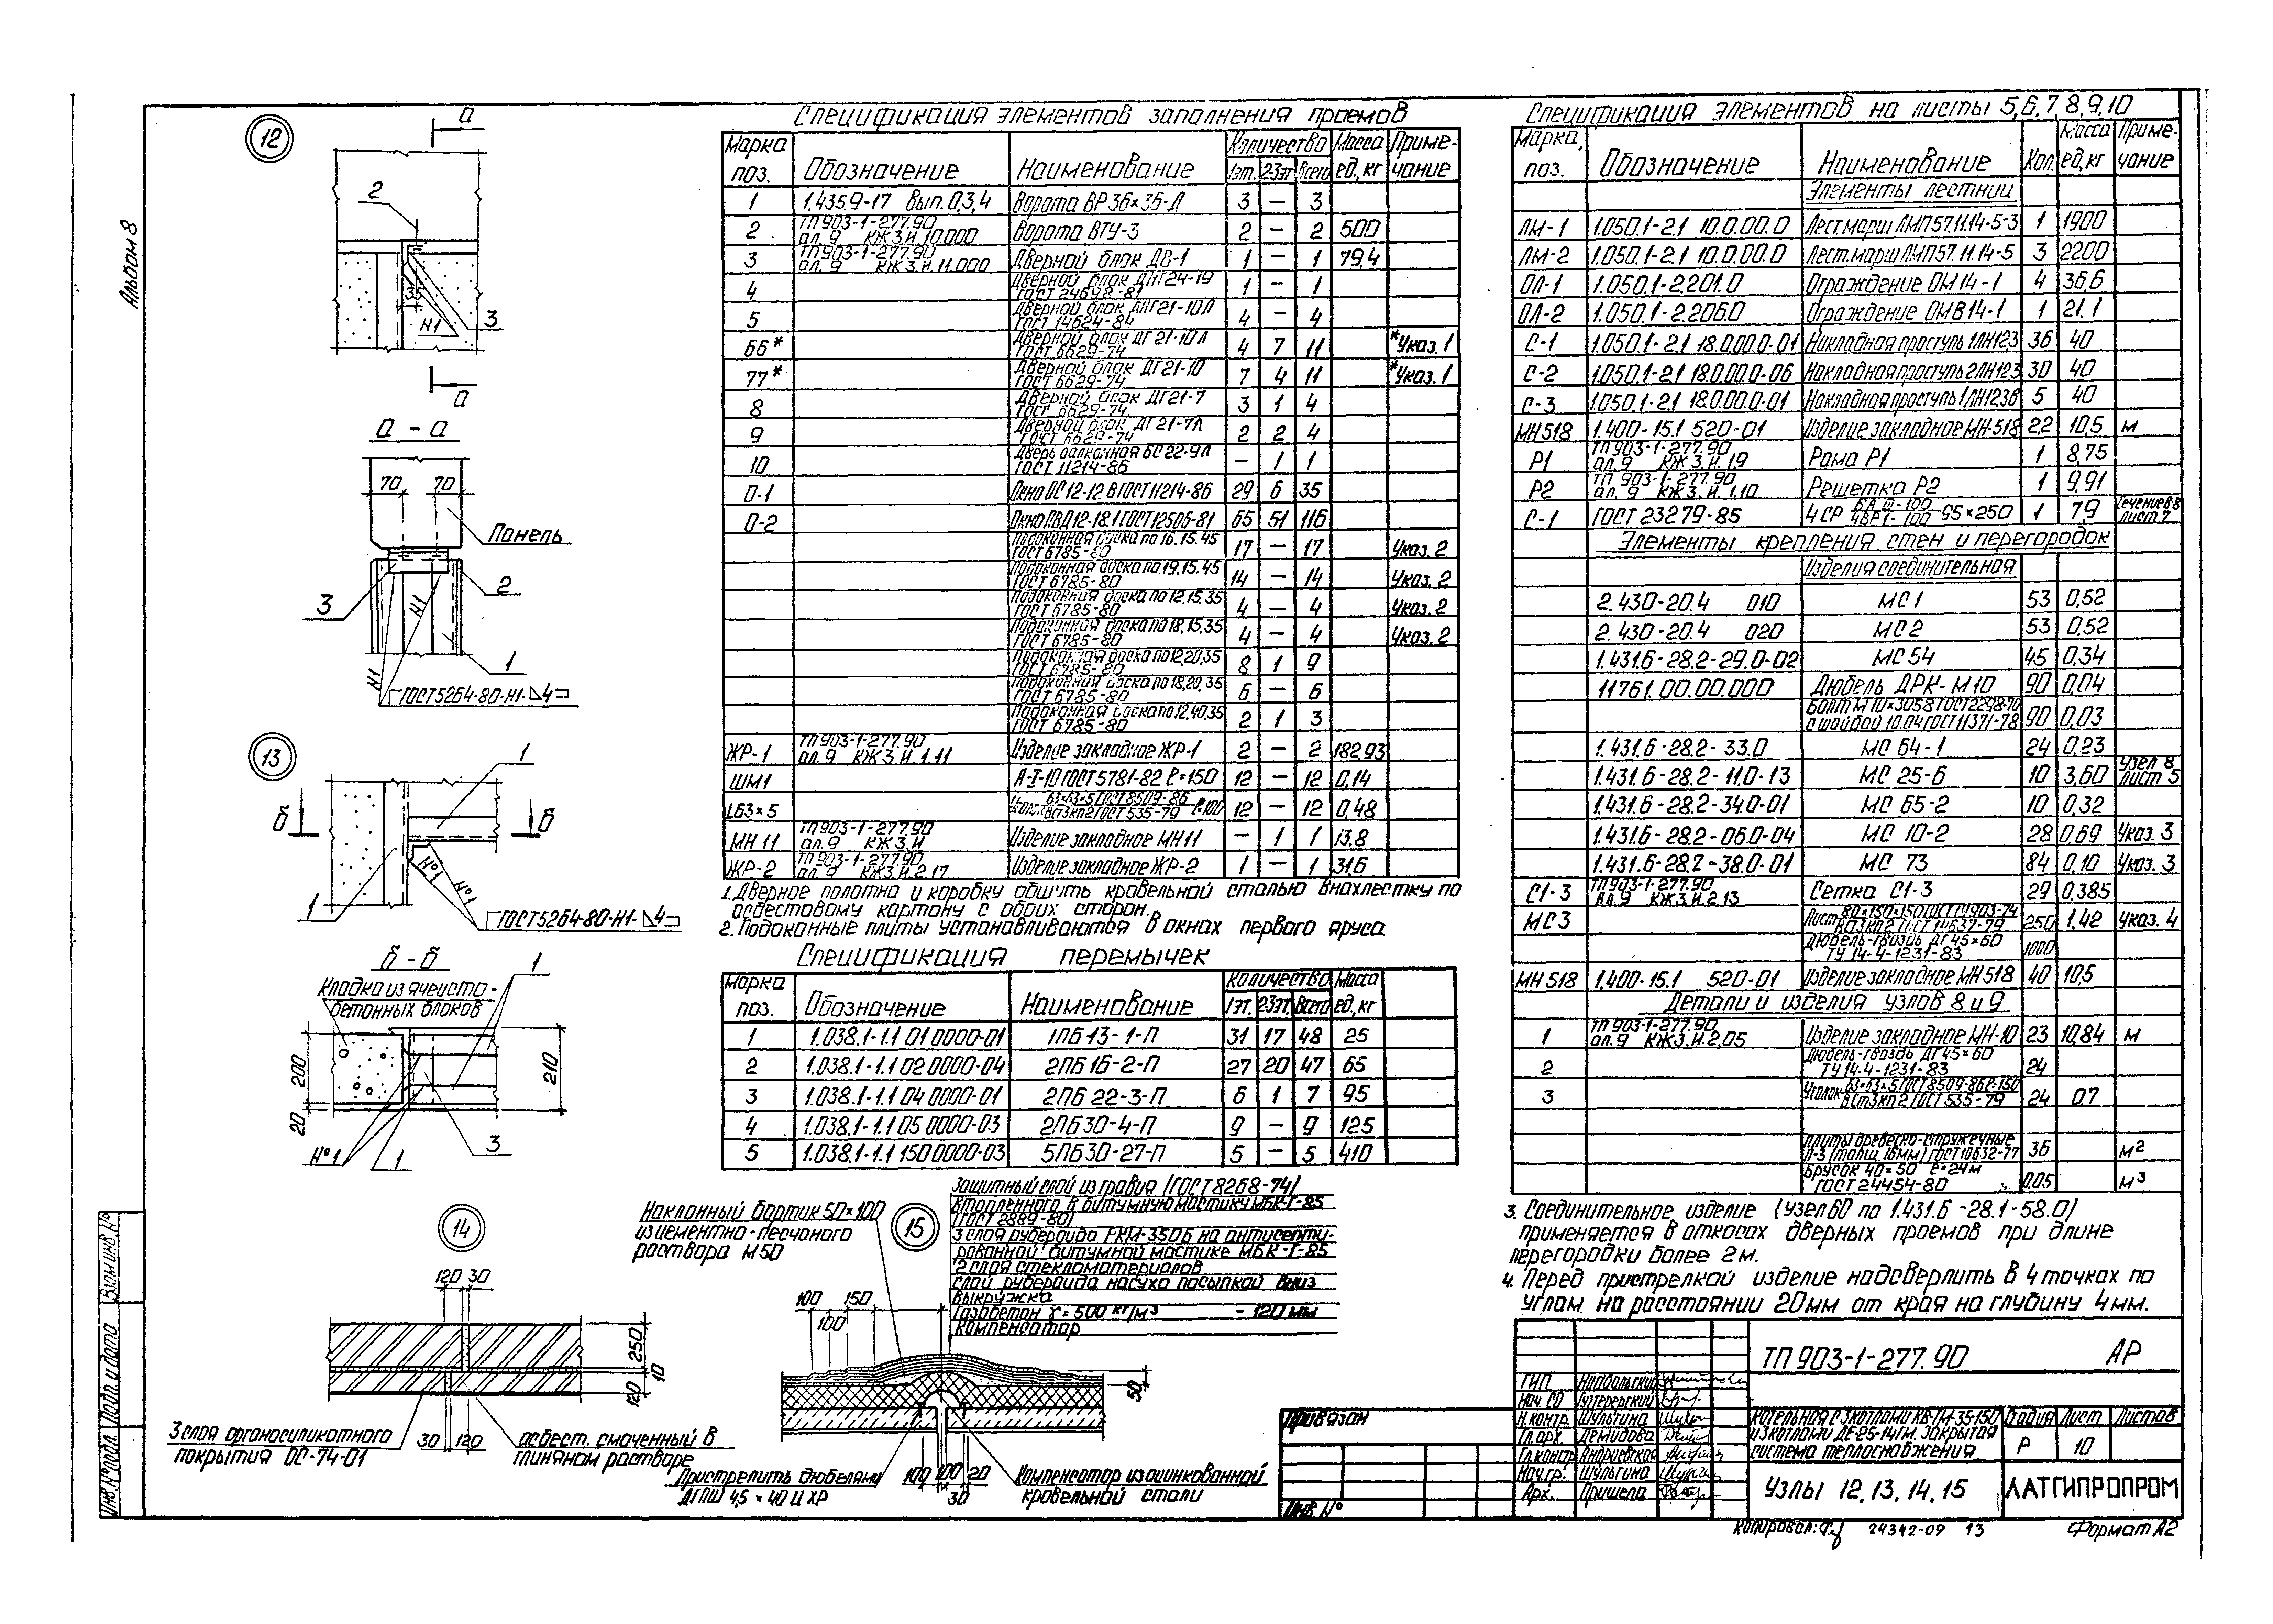 Альбом 8
12
а
2
35
Н1
3
а
а - а
70 70
Панель
3
2
Н1
1
Н1
ГОСТ 5264-80-Н1-⊿4
13
1
б б
Н°1 Н°1
1
ГОСТ 5264-80-Н1-⊿4
б - б
1
Кладка из ячеисто-
бетонных блоков
200
20
210
Н°1
1
3
14
120 30
250
10
120
3 слоя органосиликатного
покрытия ОС-74-01
30 120
асбест, смоченный в
глиняном растворе
Наклонный бортик 50×100
из цементно-песчаного
раствора М50
15
Защитный слой из гравия (ГОСТ 8268-74)
втопленного в битумную мастику МБК-Г-85
(ГОСТ 2889-80)
3 слоя рубероида РКМ-350Б на антисепти-
рованной битумной мастике МБК-Г-85
2 слоя стекломатериалов
Слой рубероида насухо посыпкой вниз
Выкружка
Газобетон γ=500 кг/м³ - 120 мм
Компенсатор
100 150
100
50
Пристрелить дюбелями
ДГПШ 4,5×40 Ц ХР
100 100 20
30
Компенсатор из оцинкованной
кровельной стали
Спецификация элементов заполнения проемов
Марка поз. Обозначение Наименование Количество 1эт. 2-3эт Всего Масса ед, кг Приме-чание
1 1.435.9-17 Вып. 0,3,4 Ворота ВР 36×36-Д 3 — 3
2 ТП 903-1-277.90 ал. 9 КЖ 3.И.10.000 Ворота ВТУ-3 2 — 2 500
3 ТП 903-1-277.90 ал. 9 КЖ 3.И.11.000 Дверной блок ДВ-1 1 — 1 79,4
4 Дверной блок ДПГ24-19 ГОСТ 24698-81 1 — 1
5 Дверной блок ДПГ21-10Л ГОСТ 14624-84 4 — 4
66* Дверной блок ДГ 21-10Л ГОСТ 6629-74 4 7 11 *Указ. 1
77* Дверной блок ДГ21-10 ГОСТ 6629-74 7 4 11 *Указ. 1
8 Дверной блок ДГ21-7 ГОСТ 6629-74 3 1 4
9 Дверной блок ДГ 21-7Л ГОСТ 6629-74 2 2 4
10 Дверь балконная БС 22-9Л ГОСТ 11214-86 — 1 1
О-1 Окно ОС 12-12 В ГОСТ 11214-86 29 6 35
О-2 Окно ПВД 12-18.1 ГОСТ 12506-81 65 51 116
Подоконная доска по 16.15.45 ГОСТ 6785-80 17 — 17 Указ. 2
Подоконная доска по 19.15.45 ГОСТ 6785-80 14 — 14 Указ. 2
Подоконная доска по 12.15.35 ГОСТ 6785-80 4 — 4 Указ. 2
Подоконная доска по 18.15.35 ГОСТ 6785-80 4 — 4 Указ. 2
Подоконная доска по 12.20.35 ГОСТ 6785-80 8 1 9
Подоконная доска по 18.20.35 ГОСТ 6785-80 6 — 6
Подоконная доска по 12.40.35 ГОСТ 6785-80 2 1 3
ЖР-1 ТП 903-1-277.90 ал. 9 КЖ 3.И.1.11 Изделие закладное ЖР-1 2 — 2 182,93
ШМ1 А-I-10 ГОСТ 5781-82 ℓ=150 12 — 12 0,14
L63×5 63×63×5 ГОСТ 8509-86 ВСт3кп2 ГОСТ 535-79 ℓ=100 12 — 12 0,48
МН 11 ТП 903-1-277.90 ал. 9 КЖ 3.И Изделие закладное МН 11 — 1 1 13,8
ЖР-2 ТП 903-1-277.90 ал. 9 КЖ 3.И.2.17 Изделие закладное ЖР-2 1 — 1 31,6
1. Дверное полотно и коробку обшить кровельной сталью внахлестку по
асбестовому картону с обоих сторон.
2. Подоконные плиты устанавливаются в окнах первого яруса
Спецификация перемычек
Марка поз. Обозначение Наименование Количество 1эт. 2-3эт. Всего Масса ед, кг
1 1.038.1-1.1 01 0000-01 1ПБ 13-1-П 31 17 48 25
2 1.038.1-1.1 02 0000-04 2ПБ 16-2-П 27 20 47 65
3 1.038.1-1.1 04 0000-01 2ПБ 22-3-П 6 1 7 95
4 1.038.1-1.1 05 0000-03 2ПБ 30-4-П 9 — 9 125
5 1.038.1-1.1 150 0000-03 5ПБ 30-27-П 5 — 5 410
Спецификация элементов на листы 5,6,7,8,9,10
Марка, поз. Обозначение Наименование Кол. Масса ед, кг Приме-чание
Элементы лестниц
ЛМ-1 1.050.1-2.1 10.0.00.0 Лест. марш ЛМП57.11.14-5-3 1 1900
ЛМ-2 1.050.1-2.1 10.0.00.0 Лест. марш ЛМП57.11.14-5 3 2200
ОЛ-1 1.050.1-2.2 01.0 Ограждение ОМ 14-1 4 36,6
ОЛ-2 1.050.1-2.2 06.0 Ограждение ОМВ 14-1 1 21.1
С-1 1.050.1-2.1 18.0.00.0-01 Накладная проступь 1ЛН 12.3 36 40
С-2 1.050.1-2.1 18.0.00.0-06 Накладная проступь 2ЛН 12.3 30 40
С-3 1.050.1-2.1 18.0.00.0-01 Накладная проступь 1ЛН 12.3б 5 40
МН 518 1.400-15.1 520-01 Изделие закладное МН-518 2,2 10,5 м
Р1 ТП 903-1-277.90 ал. 9 КЖ 3.И.1.9 Рама Р1 1 8,75
Р2 ТП 903-1-277.90 ал. 9 КЖ 3.И.1.10 Решетка Р2 1 9,91
С-1 ГОСТ 23279-85 4СР 6А III-100 4ВР1-100 95×250 1 7,9 Сечение 8-8 лист 7
Элементы крепления стен и перегородок
Изделия соединительная
2.430-20.4 010 МС 1 53 0,52
2.430-20.4 020 МС 2 53 0,52
1.431.6-28.2-29.0-02 МС 54 45 0,34
11761.00.00.000 Дюбель ДРК-М10 90 0,04
Болт М10×30.58 ГОСТ 7798-70 с шайбой 10.04 ГОСТ 11371-78 90 0,03
1.431.6-28.2-33.0 МС 64-1 24 0,23
1.431.6-28.2-11.0-13 МС 25-6 10 3,60 Узел 8 лист 5
1.431.6-28.2-34.0-01 МС 65-2 10 0,32
1.431.6-28.2-06.0-04 МС 10-2 28 0,69 Указ. 3
1.431.6-28.2-38.0-01 МС 73 84 0,10 Указ. 3
С1-3 ТП 903-1-277.90 Ал. 9 КЖ 3.И.2.13 Сетка С1-3 29 0,385
МС3 Лист 80×150×150 ГОСТ 19903-74 ВСт3кп2 ГОСТ 14637-79 250 1,42 Указ. 4
Дюбель-гвоздь ДГ 4,5×60 ТУ 14-4-1231-83 1000
МН 518 1.400-15.1 520-01 Изделие закладное МН 518 40 10,5
Детали и изделия узлов 8 и 9
1 ТП 903-1-277.90 ал. 9 КЖ 3.И.2.05 Изделие закладное МН-10 23 10,84 м
2 Дюбель-гвоздь ДГ 4,5×60 ТУ 14-4-1231-83 24
3 Уголок 63×63×5 ГОСТ 8509-86 ℓ=150 ВСт3кп2 ГОСТ 535-79 24 0,7
Плиты древесно-стружечные П-3 (толщ. 16мм) ГОСТ 10632-77 36 м²
Брусок 40×50 ℓ=24м ГОСТ 24454-80 0,05 м³
3. Соединительное изделие (узел 60 по 1.431.6-28.1-58.0)
применяется в откосах дверных проемов при длине
перегородки более 2м.
4. Перед пристрелкой изделие надсверлить в 4 точках по
углам на расстоянии 20мм от края на глубину 4мм.
ТП 903-1-277.90 АР
ГИП Надбальский
Нач. СО
Н.контр. Шульгина
Гл.арх. Демидова
Гл.констр Андриевская
Нач.гр. Шульгина
Арх. Пришепа
Котельная с 3 котлами КВ-ГМ-35-150
и 3 котлами ДЕ-25-14ГМ. Закрытая
система теплоснабжения.
Стадия Лист Листов
Р 10
Узлы 12, 13, 14, 15
ЛАТГИПРОПРОМ
Привязан
Инв. N°
Инв. N° подл. Подп. и дата Взам. инв. N°
Копировал: 24342-09 13 Формат А2